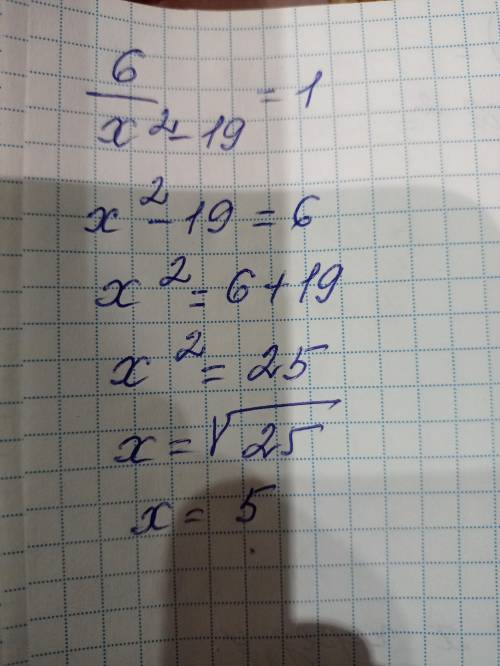 6/(x² - 19) = 1
x² - 19 = 6
x² = 6 + 19
x² = 25
x = √25
x = 5